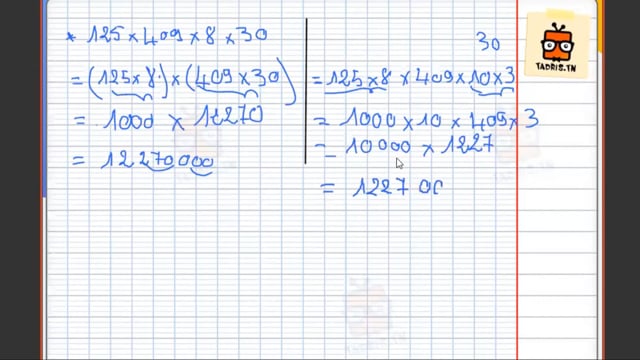 * 125 x 409 x 8 x 30
= (125 x 8) x (409 x 30)
= 1000 x 12270
= 12270000
30
= 125 x 8 x 409 x 10 x 3
= 1000 x 10 x 409 x 3
= 10000 x 1227
= 1227 00
TADRIS.TN